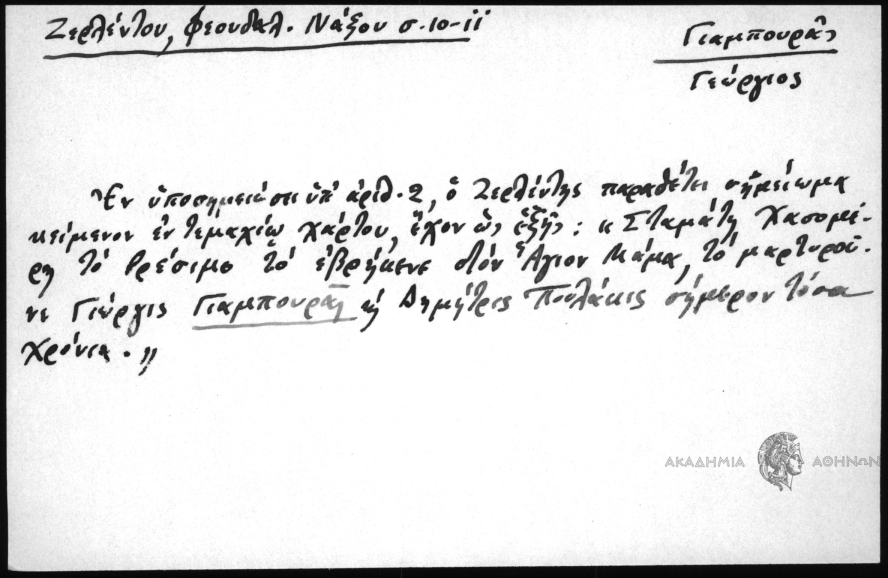 Ζερλέντου, Φεουδαλ. Νάξου σ. 10-11
Γιαμπουρᾶς
Γεώργιος
Ἐν ὑποσημειώσει ὑπ' ἀριθ. 2, ὁ Ζερλέντης παραθέτει σημείωμα
κείμενον ἐν τεμαχίῳ χάρτου, ἔχον ὡς ἑξῆς: « Σταμάτη Χασομέ-
ρη τὸ βρέσιμο τὸ ἐβρήκενε στὸν Ἅγιον Μάμα, τὸ μαρτυροῦ-
νε Γιώργις Γιαμπουρᾶς κὴ Δημήτρις Πουλάκις σήμερον τόσα
χρόνια. »
ΑΚΑΔΗΜΙΑ ΑΘΗΝΩΝ